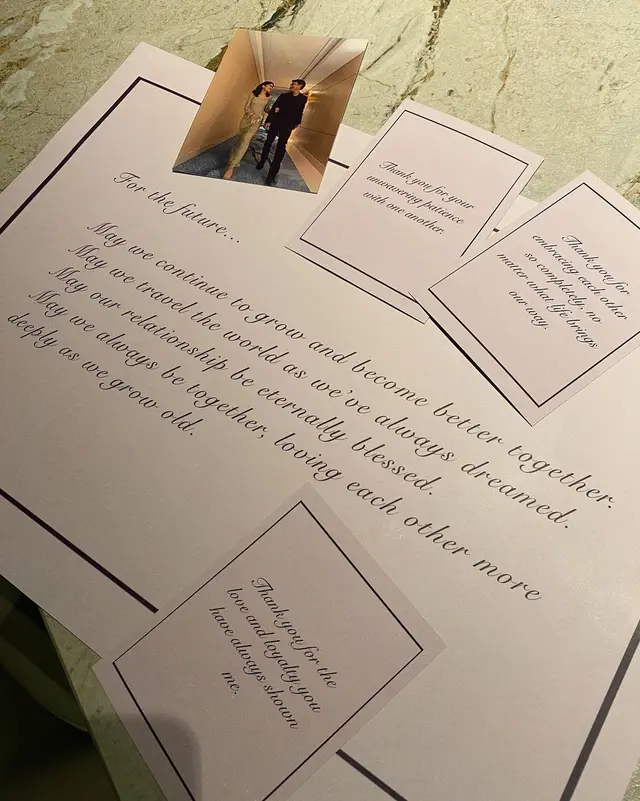 For the future...
May we continue to grow and become better together.
May we travel the world as we've always dreamed.
May our relationship be eternally blessed.
May we always be together, loving each other more
deeply as we grow old.
Thank you for your
unwavering patience
with one another.
Thank you for
embracing each other
so completely, no
matter what life brings
our way.
Thank you for the
love and loyalty you
have always shown
me.